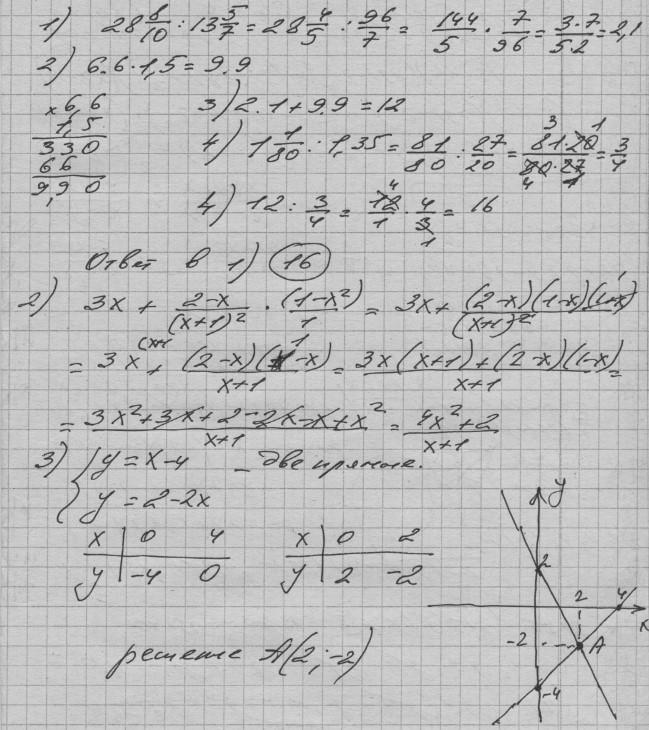 1) 28 8/10 : 13 5/7 = 28 4/5 : 96/7 = 144/5 · 7/96 = 3·7/5·2 = 2,1
2) 6.6·1,5 = 9.9
× 6,6
1,5
330
66
9,90
3) 2.1 + 9.9 = 12
4) 1 1/80 : 1,35 = 81/80 : 27/20 = 81·20/80·27 = 3/4
4) 12 : 3/4 = 12/1 · 4/3 = 16
Ответ в 1) 16
2) 3x + 2-x/(x+1)² · (1-x²)/1 = 3x + (2-x)(1-x)(1+x)/(x+1)²
= 3x + (2-x)(1-x)/x+1 = 3x(x+1)+(2-x)(1-x)/x+1 =
= 3x²+3x+2-2x-x+x²/x+1 = 4x²+2/x+1
3) { y = x-4 – две прямые.
y = 2-2x
x | 0 4
y | -4 0
x | 0 2
y | 2 -2
решение A(2;-2)
y
2
2
4
x
-2
A
-4